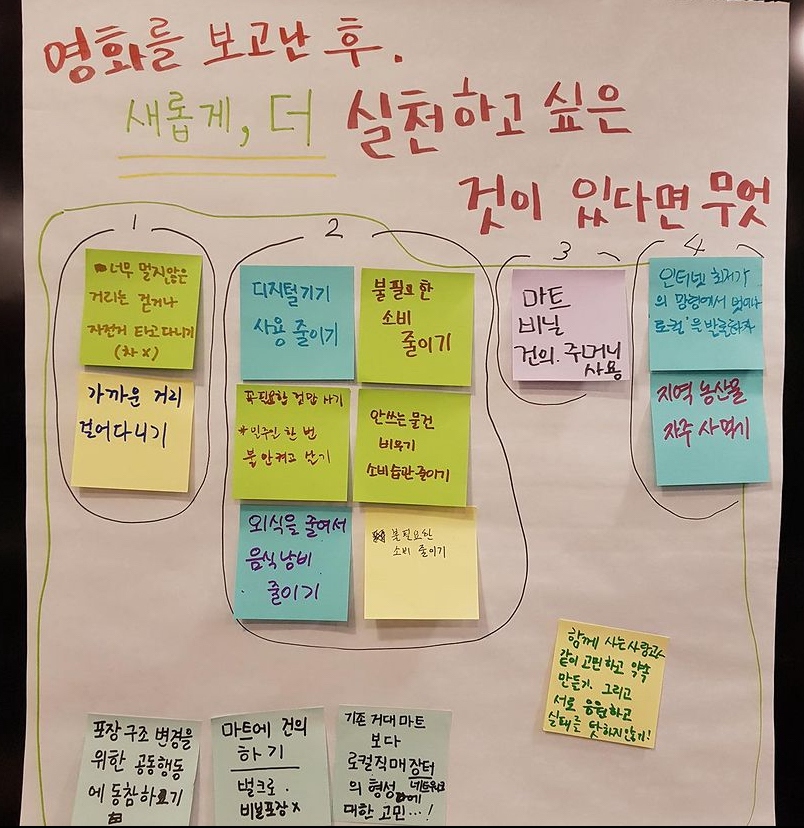 영화를 보고난 후.
새롭게, 더 실천하고 싶은
것이 있다면 무엇
1
너무 멀지않은
거리는 걷거나
자전거 타고 다니기
(차 X)
가까운 거리
걸어다니기
2
디지털기기
사용 줄이기
불필요한
소비
줄이기
꼭 필요한 것만 사기
*일주일 한 번
불 안켜고 살기
안쓰는 물건
비우기
소비습관 줄이기
외식을 줄여서
음식낭비
줄이기
불필요한
소비 줄이기
3
마트
비닐
건의. 주머니
사용
4
인터넷 최저가
의 망령에서 벗어나
로컬을
지역 농산물
자주 사먹기
함께 사는 사람과
같이 고민하고 약속
만들기. 그리고
서로 응원하고
실태를 탓하지 않기!
포장 구조 변경을
위한 공동행동
에 동참하기
마트에 건의
하기
벌크로.
비닐포장 X
기존 거대 마트
보다
로컬직매장터
네트워크
의 형성에
대한 고민…!